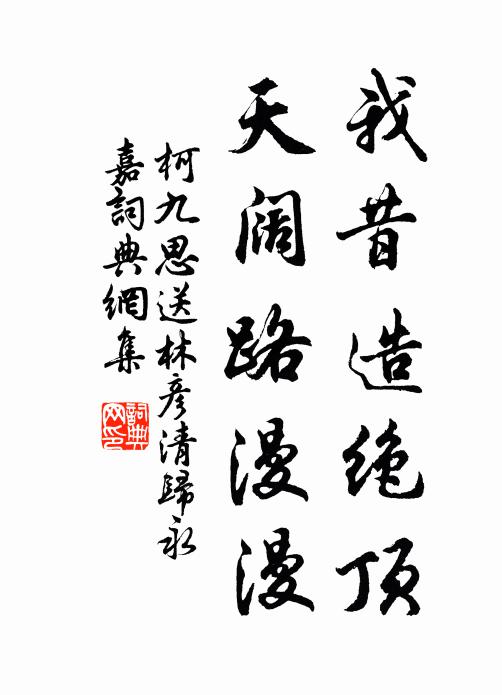 我昔造绝顶
天阔路漫漫
柯九思送林彦清歸永
嘉詞典網集
詞典网印